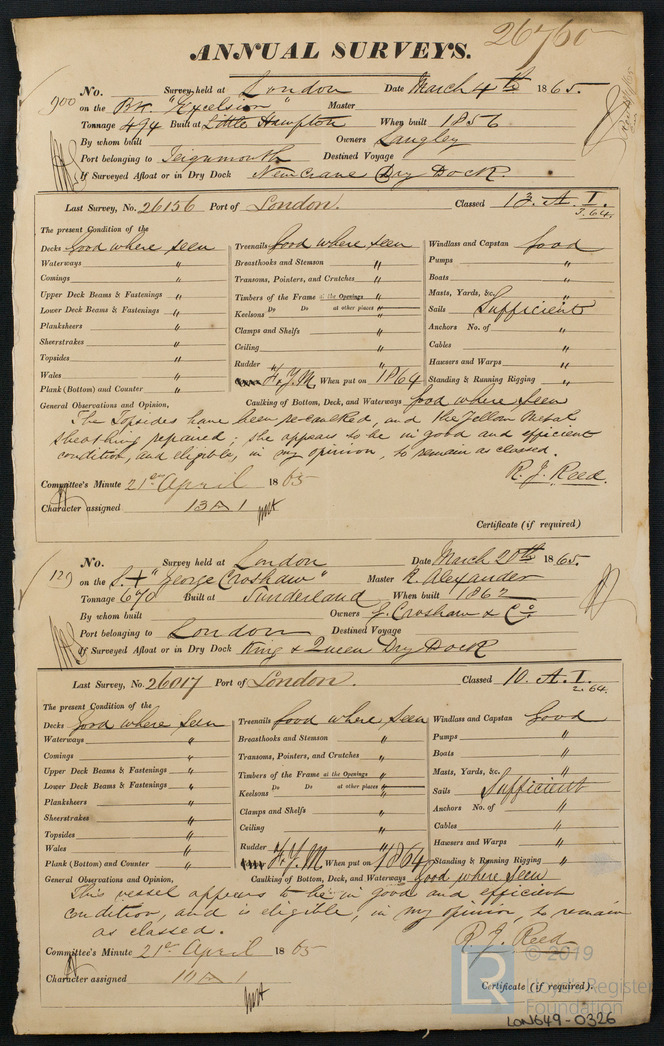 ANNUAL SURVEYS. 26760
No. Survey held at London Date March 4th 1865.
on the Bk "Excelsior" Master
Tonnage 494 Built at Little Hampton When built 1856
By whom built Owners Langley
Port belonging to Teignmouth Destined Voyage
If Surveyed Afloat or in Dry Dock New Crane Dry Dock.
Last Survey, No. 26156 Port of London. Classed 13. A. I.
3.64.
The present Condition of the
Decks Good where seen Treenails Good where seen Windlass and Capstan Good
Waterways " Breasthooks and Stemson " Pumps "
Comings " Transoms, Pointers, and Crutches " Boats "
Upper Deck Beams & Fastenings " Timbers of the Frame at the Openings " Masts, Yards, &c. "
Lower Deck Beams & Fastenings " Keelsons Do Do at other places " Sails Sufficient
Planksheers " Clamps and Shelfs " Anchors No. of "
Sheerstrakes " Ceiling " Cables "
Topsides " Rudder " Hawsers and Warps "
Wales " F.Y.M When put on 1864 Standing & Running Rigging "
Plank (Bottom) and Counter " Caulking of Bottom, Deck, and Waterways Good where seen
General Observations and Opinion,
The Topsides have been recaulked, and the Yellow Metal
sheathing repaired; she appears to be in good and efficient
condition, and eligible, in my opinion, to remain as classed.
R. J. Reed.
Committee's Minute 21st April 1865
Character assigned 13 A 1
Certificate (if required)
129
No. Survey held at London Date March 20th 1865.
on the "George Croshaw" Master R. Alexander
Tonnage 670 Built at Sunderland When built 1862
By whom built Owners G. Croshaw & Co.
Port belonging to London Destined Voyage
If Surveyed Afloat or in Dry Dock King & Queen Dry Dock
Last Survey, No. 26017 Port of London. Classed 10. A. I.
2.64.
The present Condition of the
Decks Good where seen Treenails Good where seen Windlass and Capstan Good
Waterways " Breasthooks and Stemson " Pumps "
Comings " Transoms, Pointers, and Crutches " Boats "
Upper Deck Beams & Fastenings " Timbers of the Frame at the Openings " Masts, Yards, &c. "
Lower Deck Beams & Fastenings " Keelsons Do Do at other places " Sails Sufficient
Planksheers " Clamps and Shelfs " Anchors No. of "
Sheerstrakes " Ceiling " Cables "
Topsides " Rudder " Hawsers and Warps "
Wales " F.Y.M When put on 1864 Standing & Running Rigging "
Plank (Bottom) and Counter " Caulking of Bottom, Deck, and Waterways Good where seen
General Observations and Opinion,
This vessel appears to be in good and efficient
condition, and is eligible, in my opinion, to remain
as classed.
R. J. Reed
Committee's Minute 21st April 1865
Character assigned 10 A 1
Certificate (if required).
LR © 2019
Lloyd's Register
Foundation
LON649-0326